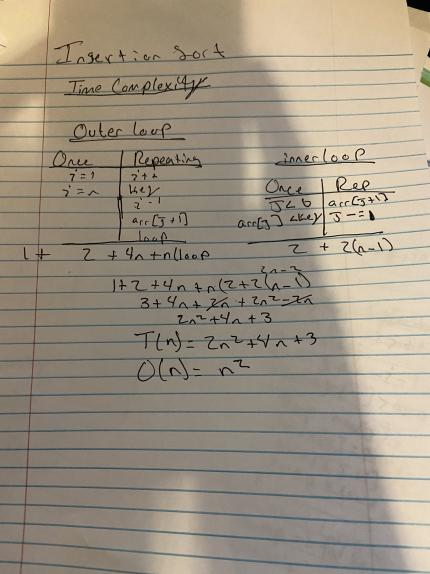 Insertion Sort
Time Complexity
Outer loop
Once Repeating
i=1 i++
i=n key
i-1
arr[j+1]
loop
1+ 2 + 4n + n(loop
inner loop
Once Rep
J<0 arr[j+1]
arr[j] <key J-=1
2 + 2(n-1)
2n-2
1+2+4n+n(2+2(n-1)
3+4n+2n+2n²-2n
2n²+4n+3
T(n)=2n²+4n+3
O(n)= n²